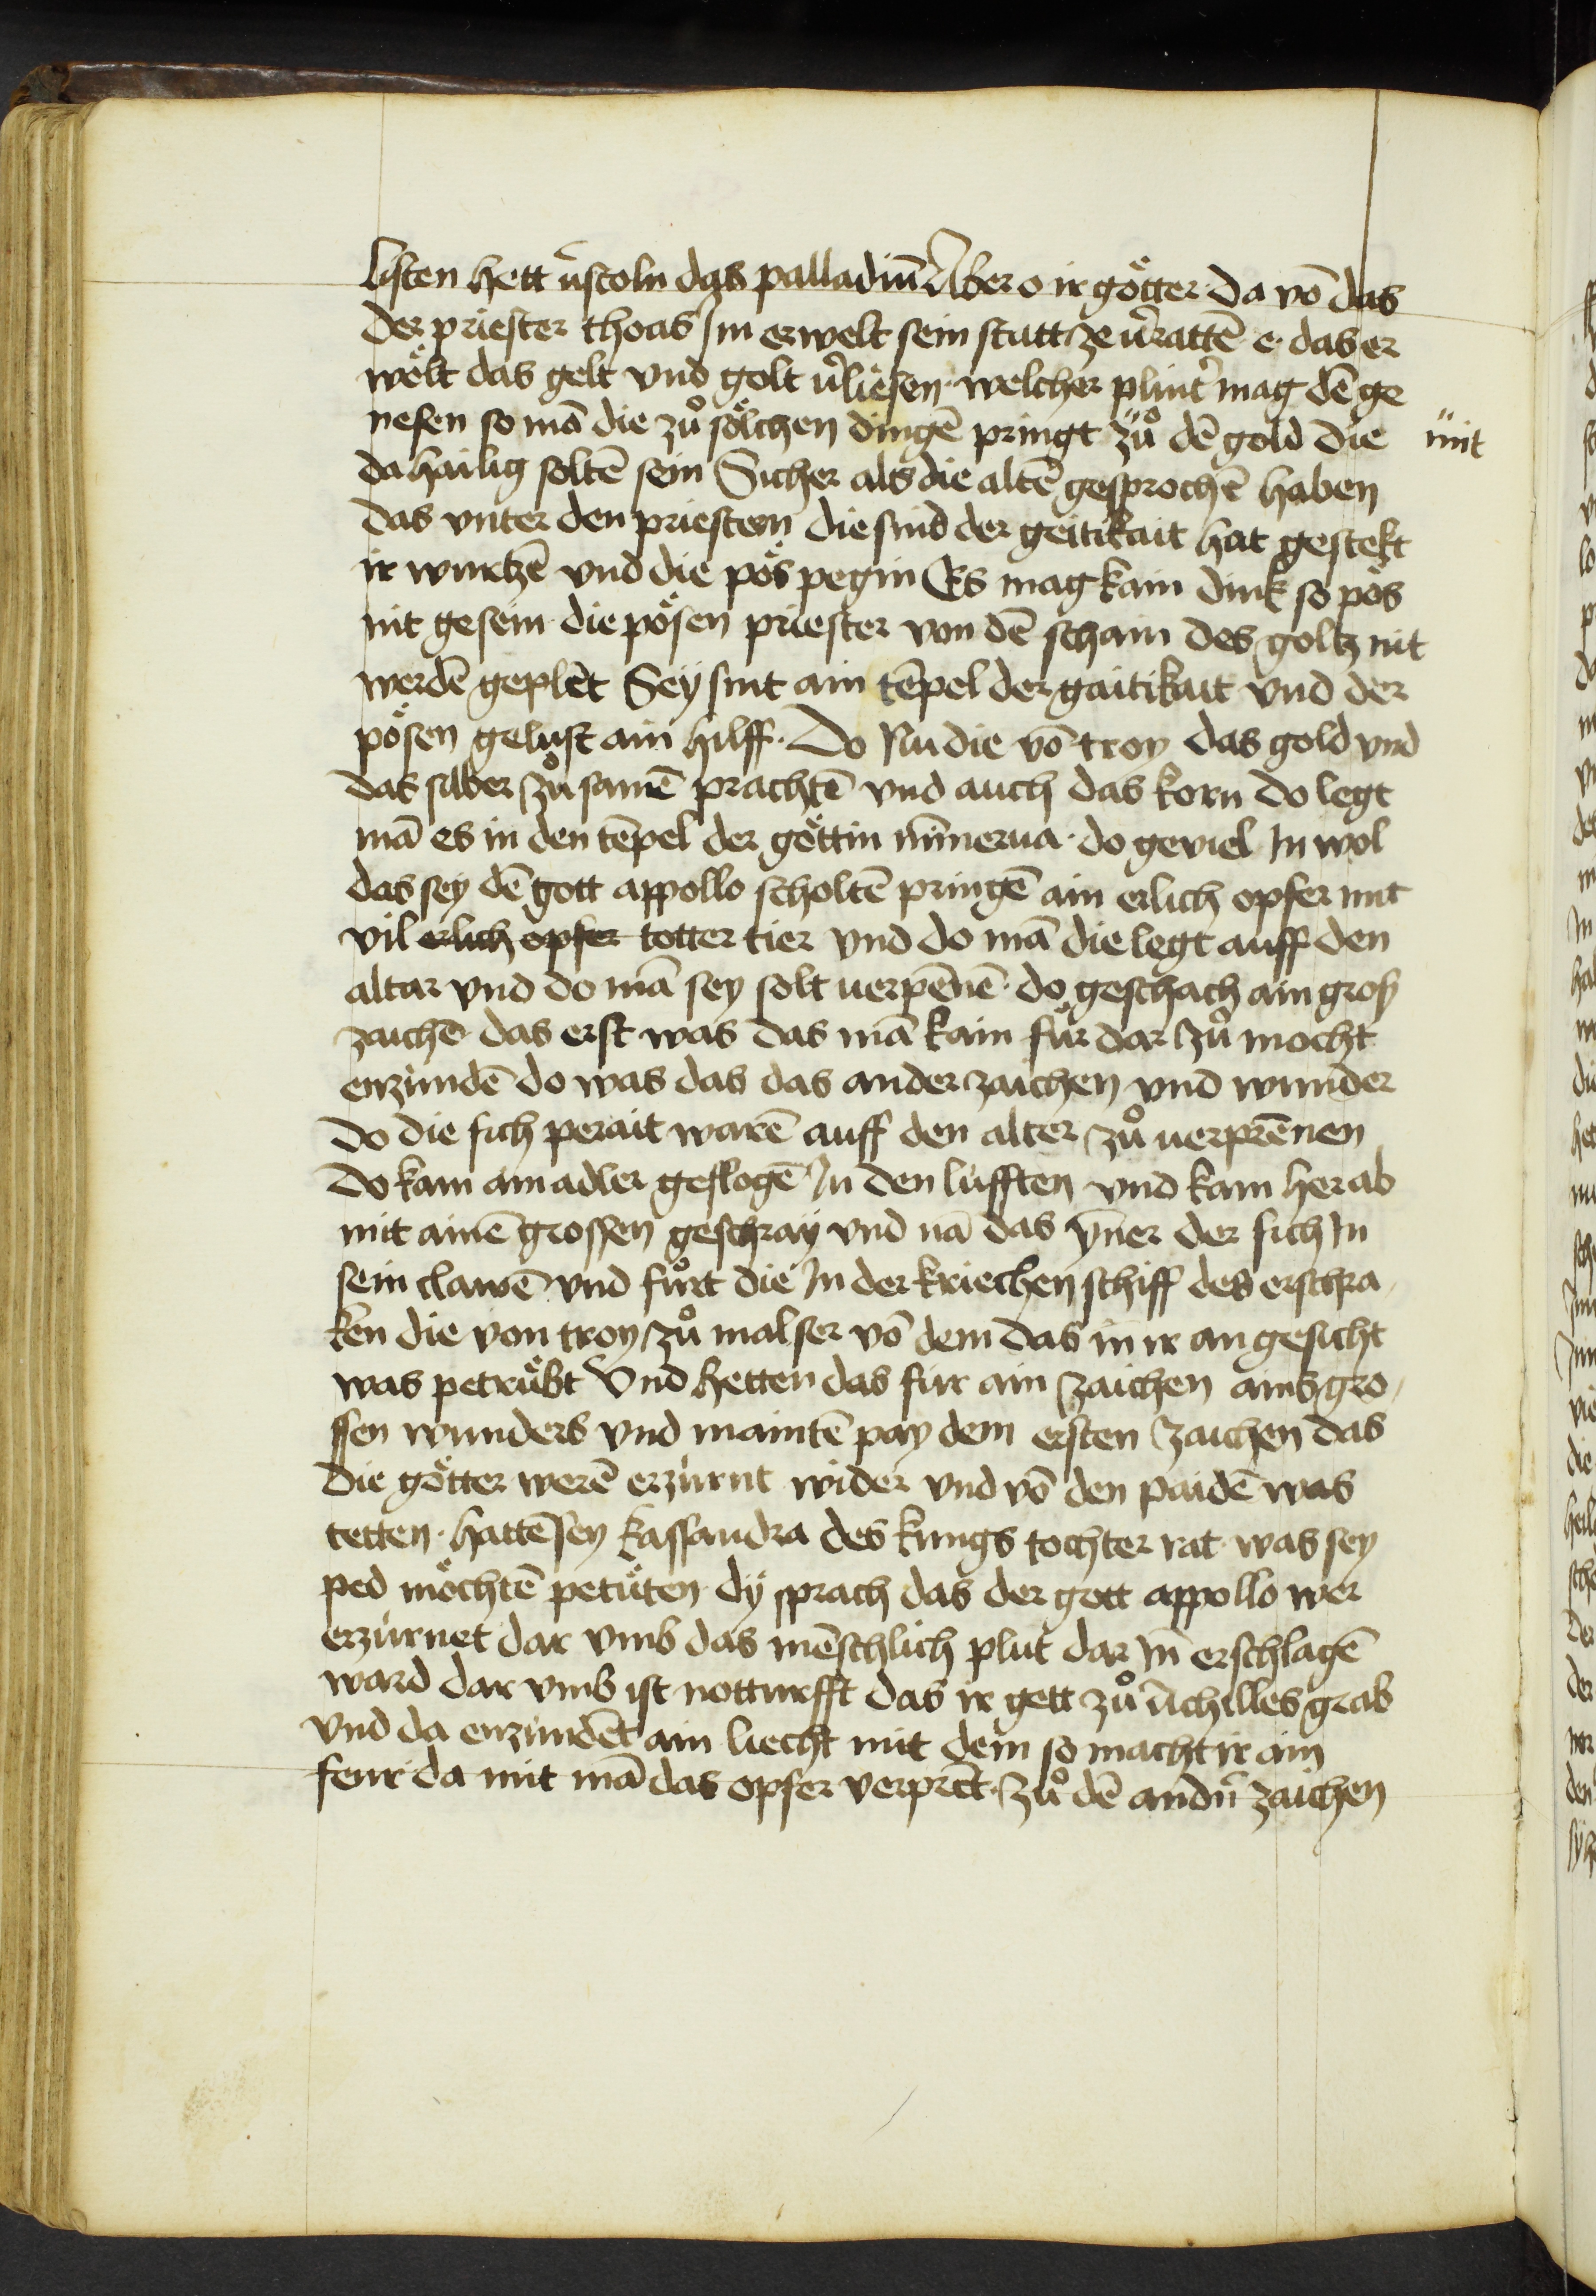 listen hett ṽscoln das palladiū Aber o ir götter da võ das
der priester thoas Im erwelt sein statt ze ṽrattē e das er
wölt das gelt vnd golt ṽliesen welcher plint̉ mag dē ge
nesen so mā die zů sölchen dingē pringt zů dē gold die mit
da hailig soltē sein Sicher als die altē gesprochē haben
das vnter den priestern die sind der geitikait hat gestekt
ir wurtzē vnd die pös pegin Es mag kain dink so pös
nit gesein die pösen priester von dē schain des goltz nit
werdē geplēt Sey sint ain tēpel der gaitikait vnd der
pösen gelust ain hilff. Do Nu die võ troy das gold vnd
das silber zů samē prachtē vnd auch das korn do legt
mā es in den tēpel der göttin minerua do geviel In wol
das sey dē gott appollo scholtē pringē ain erlich opfer mit
vil erlich opfer totter tier vnd do mā die legt auff den
altar vnd do mā sey solt verpēnē do geschach ain groß
zaichē das erst was das mā kain für dar zů mocht
enzündē do was das das ander zaichen vnd wunder
do die sich perait warē auff den alter zů verprēnen
do kam ain adler geflogē In den lüfften vnd kam herab
mit ainē grossen geschray vnd nā das ÿner der sich In
sein clawē vnd fůrt die In der kriechen schiff des erschra
ken die von troy zů mal ser võ dem das in ir an gesicht
was petrübt Vnd hetten das für ain zaichen ains gro
ssen wunders vnd maintē pay dem ersten zaichen das
die götter werē erzürnt wider vnd võ den paidē was
tetten hattē sey kassandra des kungs tochter rat was sey
ped möchtē petüten dÿ sprach das der gott appollo wer
erzürnet dar vmb das mēschlich plut dar In erschlagē
ward dar vmb ist notturfft das ir gett zů Achilles grab
vnd da enzündēt ain liecht mit dem so macht ir ain
feur da mit mā das opfer verprēt zů dē andn̄ zaichen